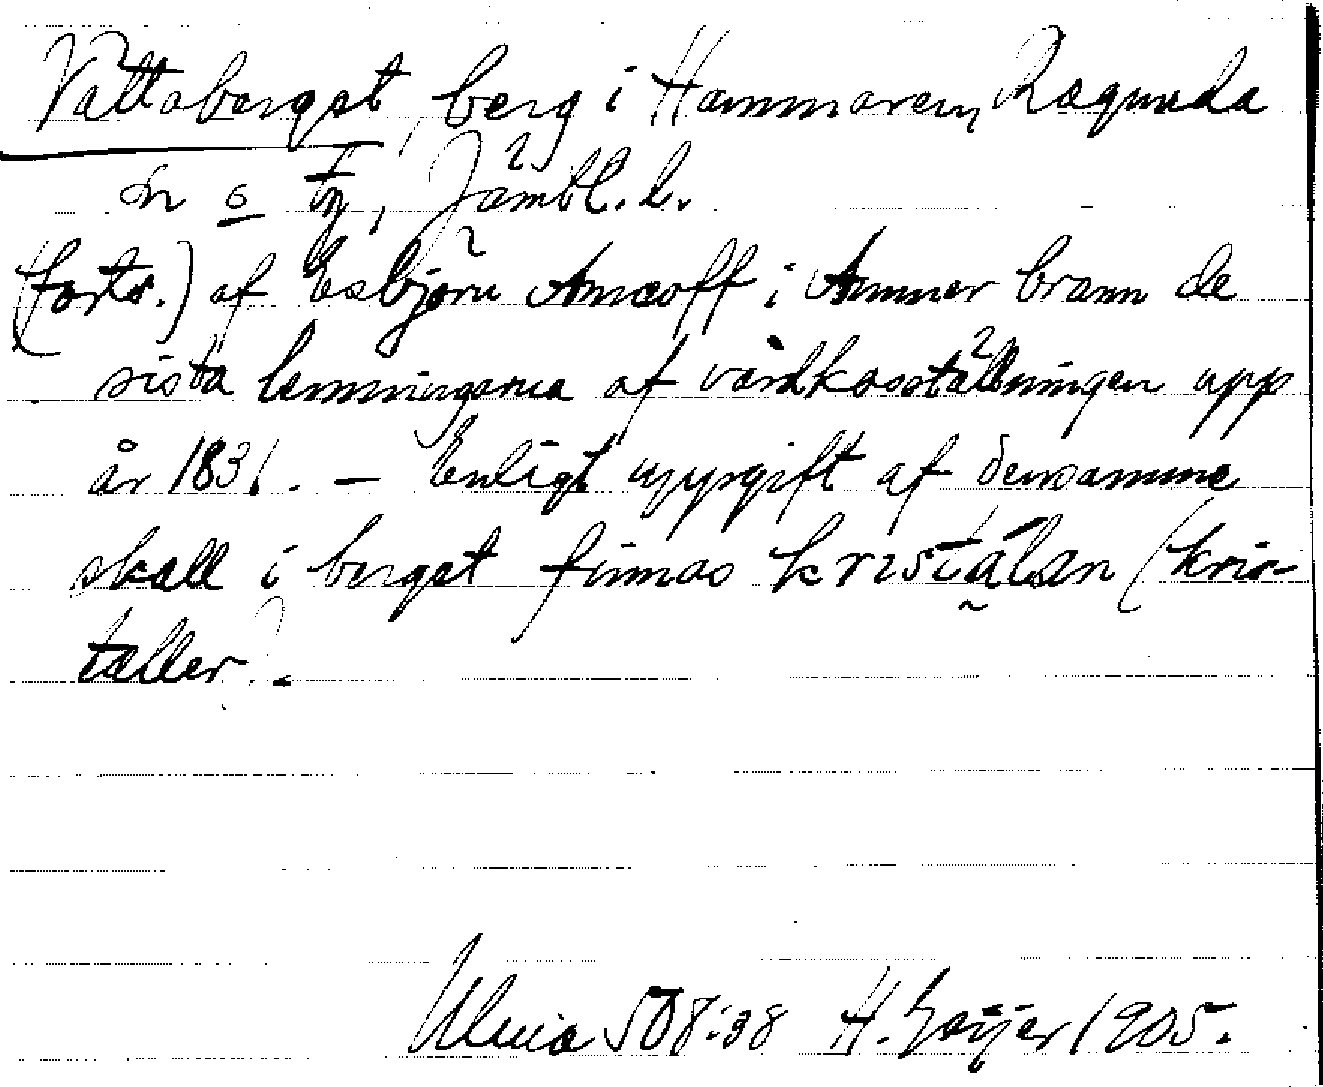 Vättaberget, berg i Hammaren, Ragunda
sn o tg, Jämtl. l.
(forts.) af Esbjörn Amcoff i Ammer brann de
sista lemningarna af vårdkasställningen upp
år 1831. — Enligt uppgift af densamme
skall i berget finnas kristálan (kris-
taller).
508:38 H. Geijer 1905.